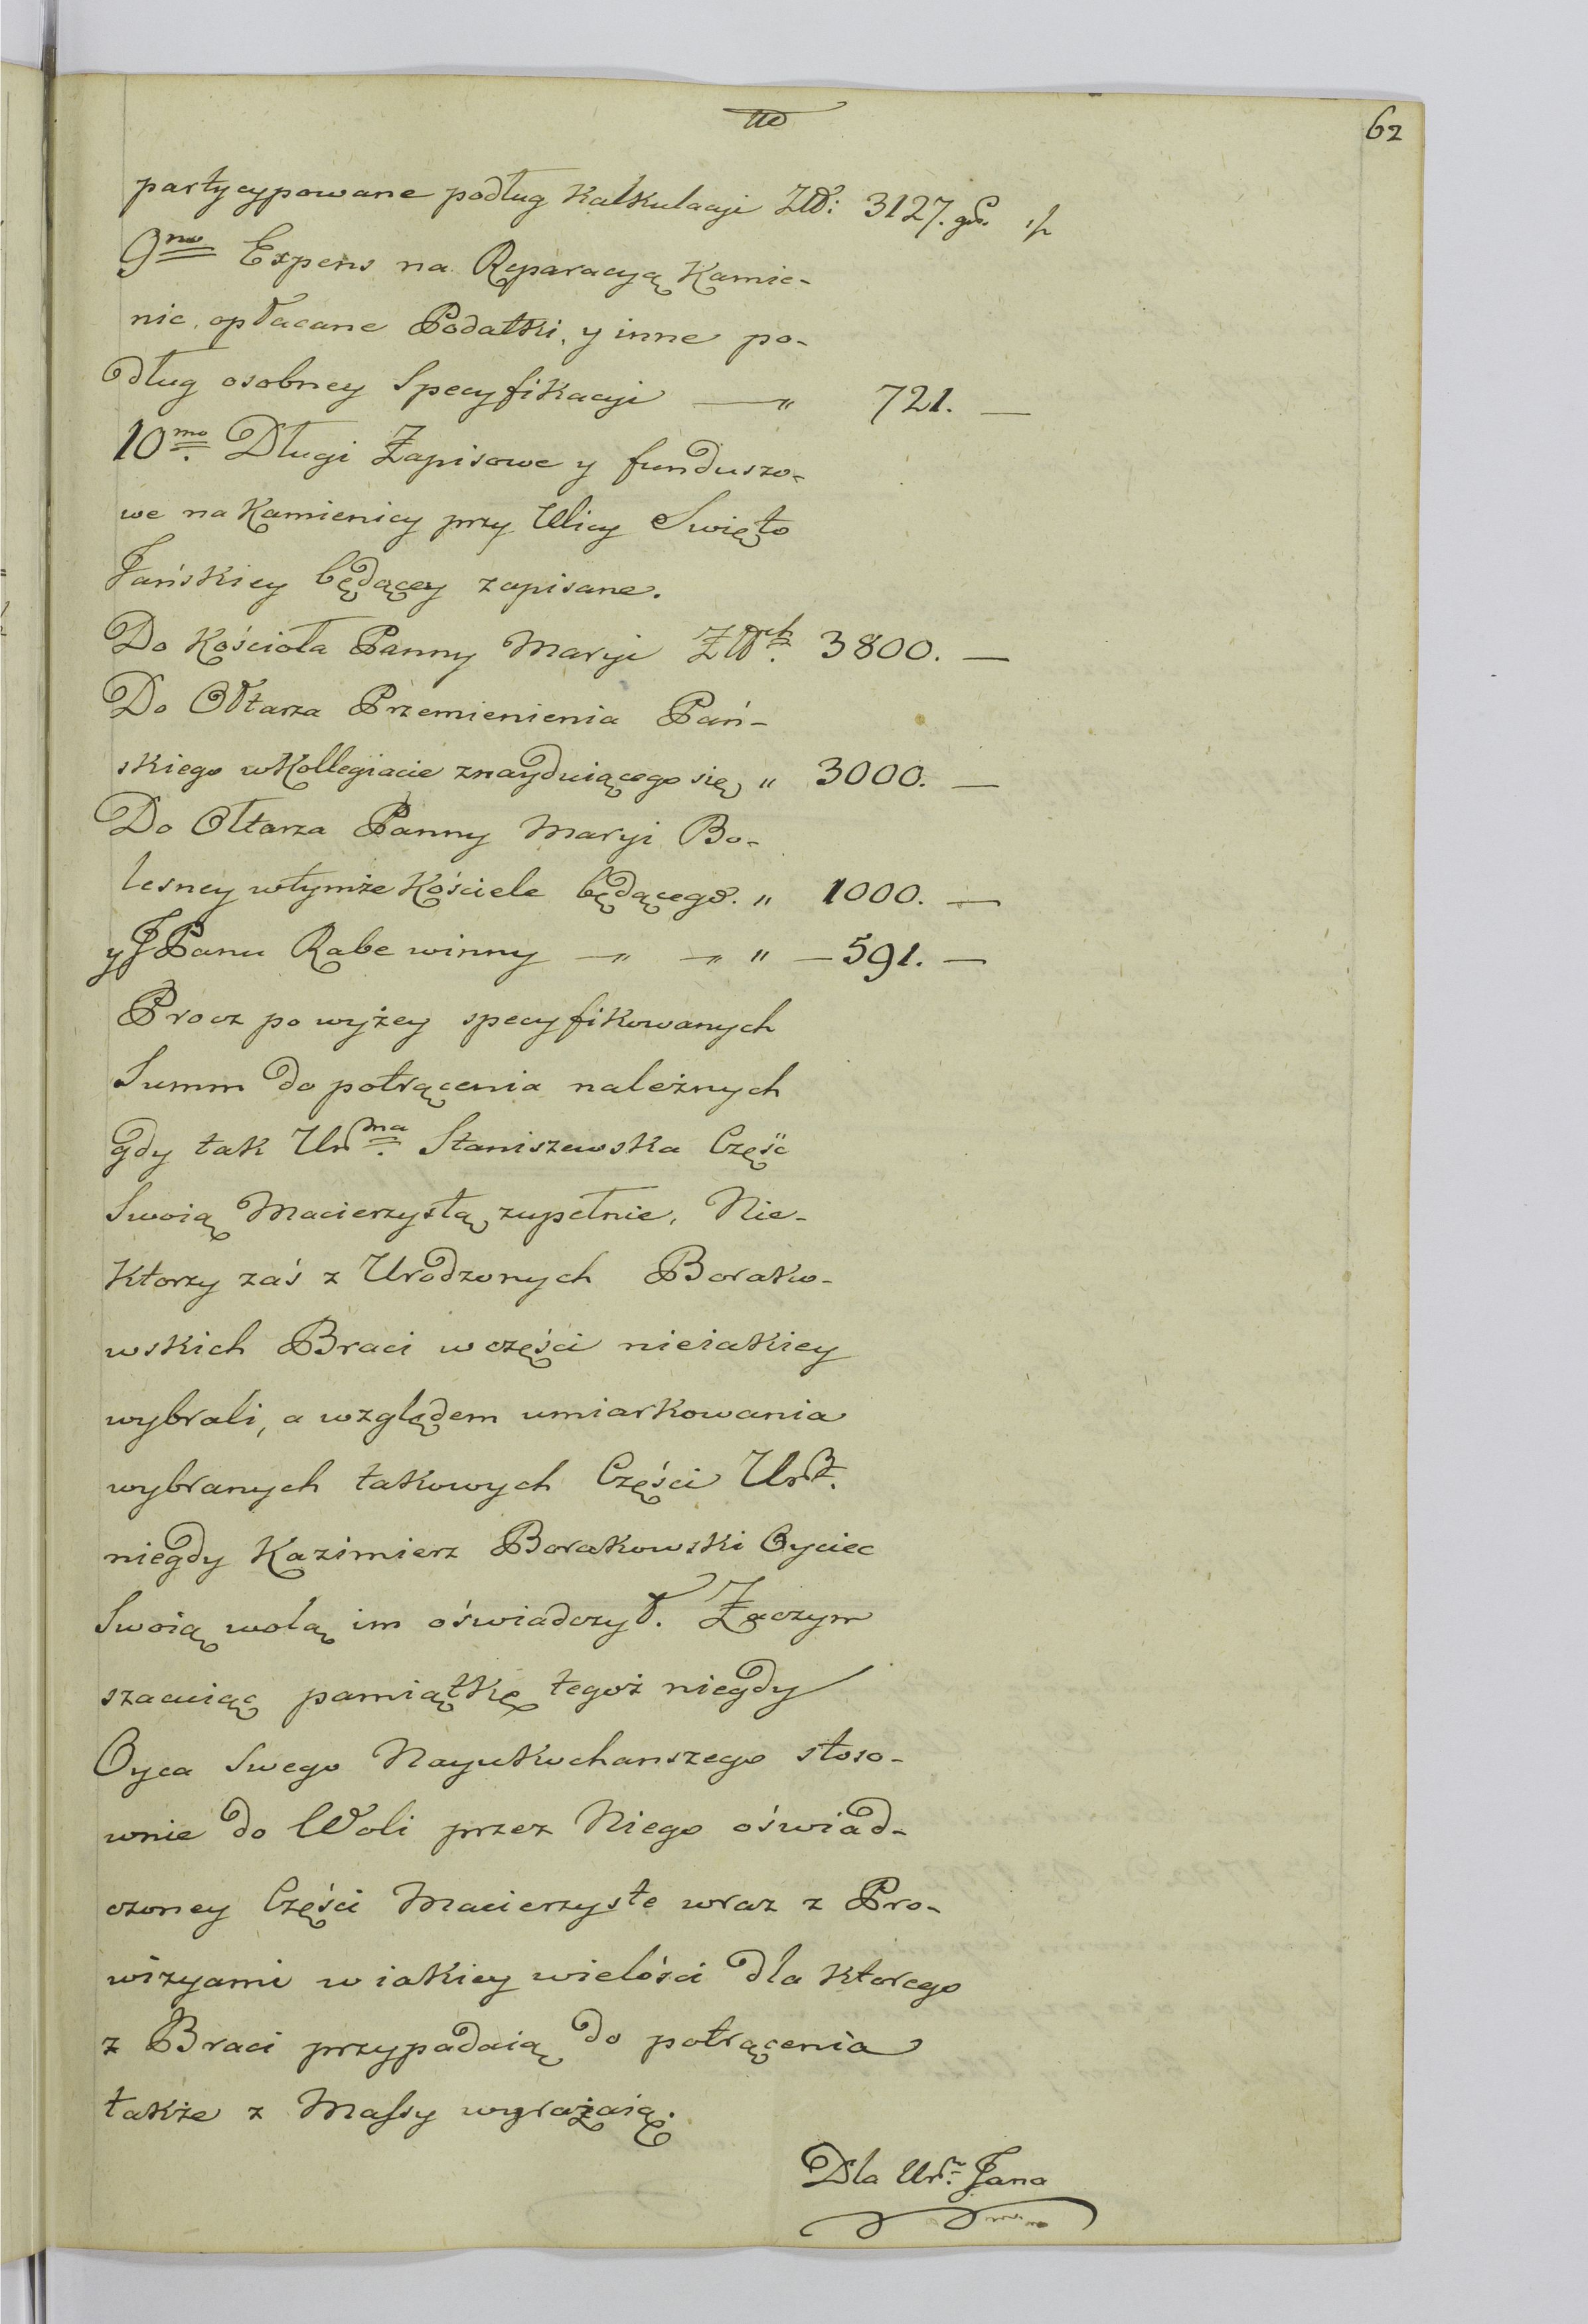 62
partycypowane podług Kalkulacyi Złł: 3127. gr.
9no Expens na Reparacyą Kamie-
nic, opłacane Podatki, y inne po-
dług osobney Specyfikacyi — " 721. —
10mo. Długi Zapisowe y funduszo-
we na Kamienicy przy Ulicy Swięto
Jańskiey będącey zapisane.
Do Kościoła Panny Maryi Złłch. 3800. —
Do Ołtarza Przemienienia Pań-
skiego w Kollegiacie znayduiącego się " 3000. —
Do Ołtarza Panny Maryi Bo-
lesney wtymże Kościele będącego. " 1000. —
y J Panu Rabe winny — " — " " — 591. —
Procz po wyżey specyfikowanych
Summ do potrącenia należnych
gdy tak Urdna. Staniszewska Część
Swoią Macierzystą zupełnie, Nie-
ktorzy zaś z Urodzonych Borako-
wskich Braci w części nieiakiey
wybrali, a względem umiarkowania
wybranych takowych Części Urdz.
niegdy Kazimierz Borakowski Oyciec
Swoią wolą im oświadczył. Zaczym
szacuiąc pamiątkę tegoż niegdy
Oyca Swego Nayukochanszego stoso-
wnie do Woli przez Niego oświad-
czoney Części Macierzyste wraz z Pro-
wizyami w iakiey wielości dla ktorego
z Braci przypadaią do potrącenia
także z Massy wyrażaią.
Dla Urd. Jana